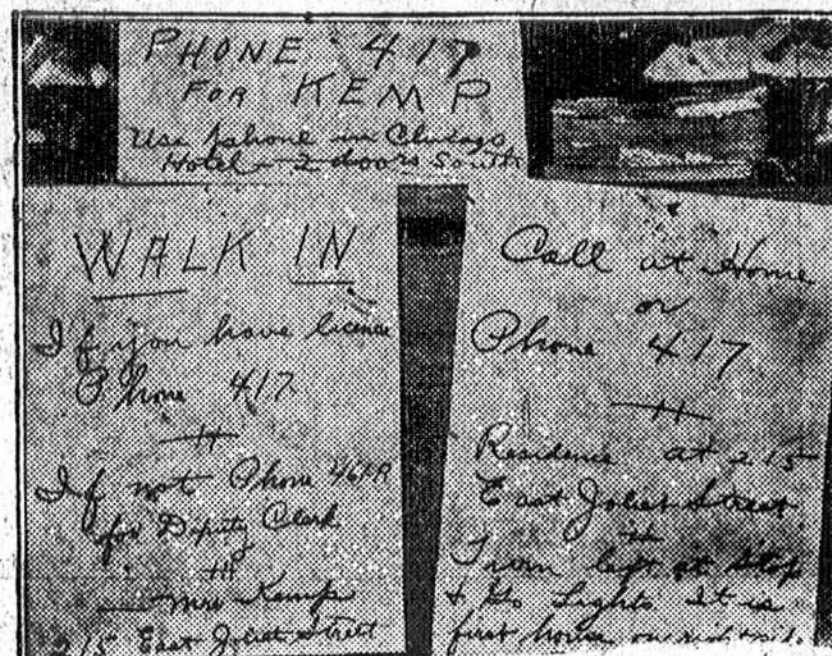 PHONE 417
FOR KEMP
Use phone in Chicago
Hotel - 2 doors South
WALK IN
If you have licence
Phone 417
If not Phone 461-R
for Deputy Clerk
Mrs Kemp
215 East Joliet Street
Call at Home
or
Phone 417
Residence at 215
East Joliet Street
Turn left at Stop
& Go Lights It is
first house on right side.